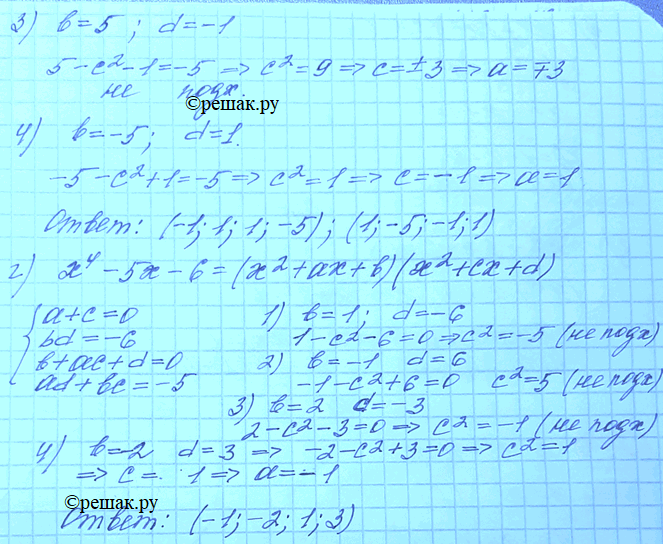 3) b=5; d=-1
5-c²-1=-5 => c²=9 => c=±3 => a=∓3
не подх.
©решак.ру
4) b=-5; d=1.
-5-c²+1=-5 => c²=1 => c=-1 => a=1
Ответ: (-1; 1; 1; -5); (1; -5; -1; 1)
г) x⁴-5x-6=(x²+ax+b)(x²+cx+d)
a+c=0
bd=-6
b+ac+d=0
ad+bc=-5
1) b=1; d=-6
1-c²-6=0 => c²=-5 (не подх)
2) b=-1 d=6
-1-c²+6=0 c²=5 (не подх)
3) b=2 d=-3
2-c²-3=0 => c²=-1 (не подх)
4) b=-2 d=3 => -2-c²+3=0 => c²=1
=> c=1 => a=-1
©решак.ру
Ответ: (-1; -2; 1; 3)